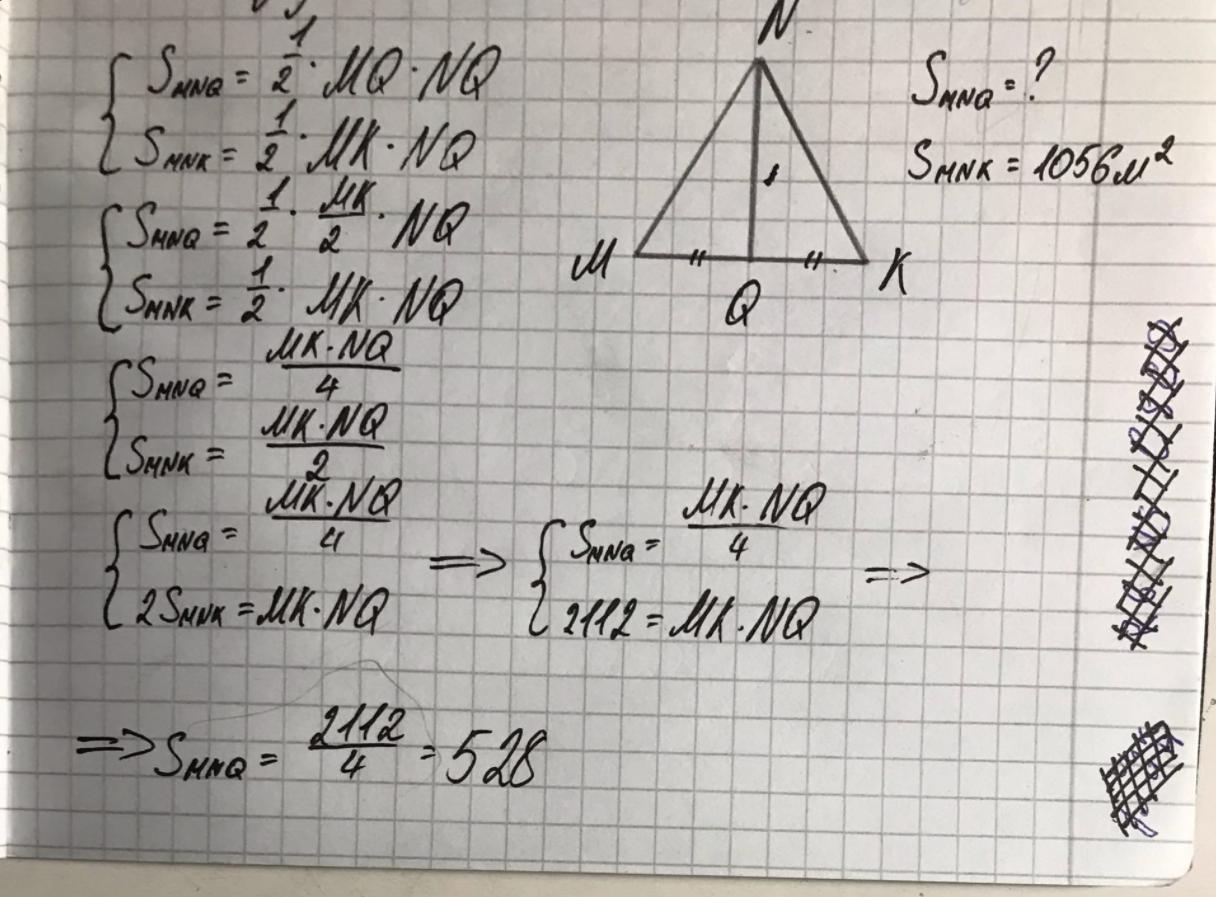 S_MNQ = 1/2 · MQ · NQ
S_MNK = 1/2 · MK · NQ
S_MNQ = 1/2 · MK/2 · NQ
S_MNK = 1/2 · MK · NQ
S_MNQ = MK·NQ/4
S_MNK = MK·NQ/2
S_MNQ = MK·NQ/4 => S_MNQ = MK·NQ/4 =>
2S_MNK = MK·NQ
2112 = MK·NQ
=> S_MNQ = 2112/4 = 528
N
M
Q
K
S_MNQ = ?
S_MNK = 1056 м²